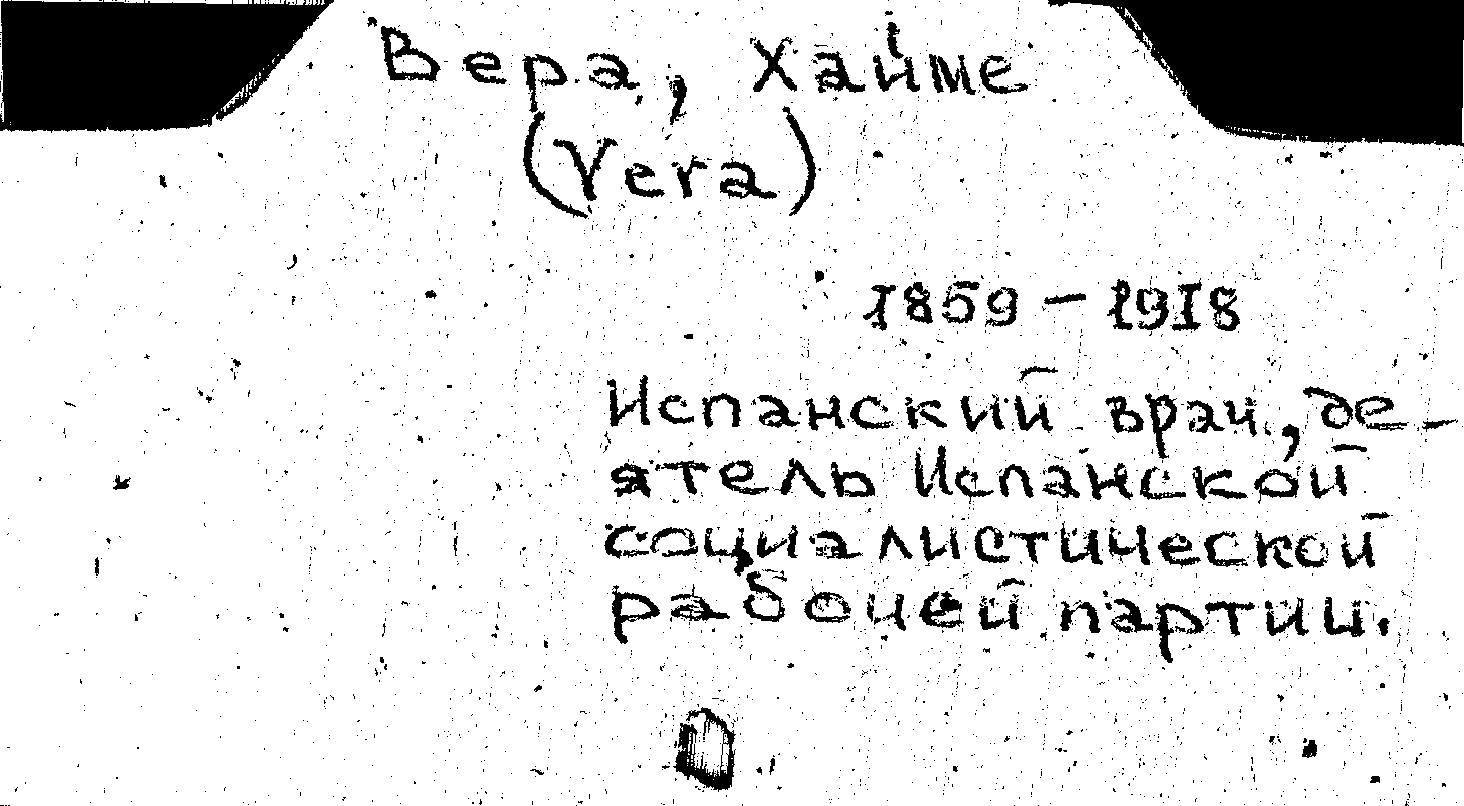 Вера, Хаиме
(Vera)
1859 – 1918
Испанский врач, де-
ятель Испанской
социалистической
рабочей партии.